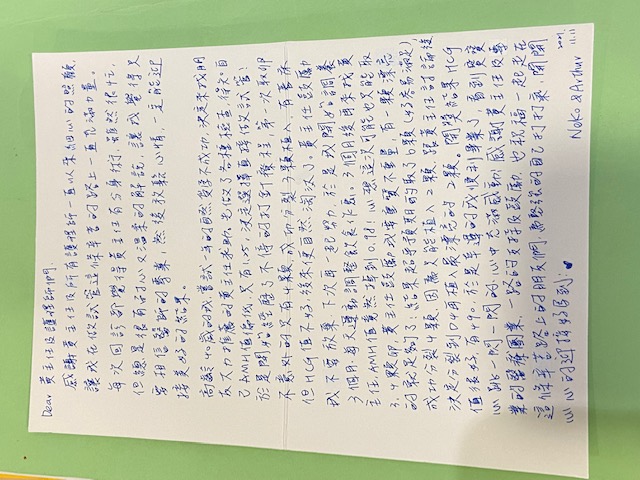 Dear 黃主任及護理師們:
感謝黃主任及所有護理師一直以來細心的照顧,
讓我在做試管這條辛苦的路上一直充滿力量。
每次回診都覺得黃主任有分身術,雖然很忙,
但總是很有耐心又溫柔的解說,讓我覺得只
要相信醫師的專業,然後放鬆心情,一定能迎
接美好的結果。
高齡40歲的我,嘗試一年的自然受孕不成功,決定來找朋
友大力推薦的黃主任求助,先做了各種檢查,得知自
己AMH值偏低,只有1.25,決定選擇直接做試管!
於是開始經歷了不停的打針療程,第一次取卵
不意外的只有4顆,成功分裂3顆植入,有著床
但HCG值不好,後來便自然淘汰了。黃主任鼓勵
我不要放棄,下次再一起努力,於是我開始調養
3個月,每天運動調整飲食作息。3個月後再來找黃
主任,AMH值竟然掉到0.98!心想這次可能也只能取
3.4顆卵,黃主任鼓勵我要重質不重量,有一顆漂亮
的就足夠了;結果超乎預期的取了6顆(好容易滿足),
成功分裂4顆,因為只能植入2顆,跟黃主任討論後
決定分裂到D4再植入最漂亮的2顆。開獎結果HCG
值很好,有490,於是幸運的我順利畢業了,看到寶寶
心跳一閃一閃的,心中充滿感動!感謝黃主任及專
業的醫療團隊,一路的支持及鼓勵,也祝福一起走在
這條辛苦路上的朋友們,為堅強的自己打打氣,開開
心心的迎接好孕到!♥
Neko & Arthur
2021.
11.11